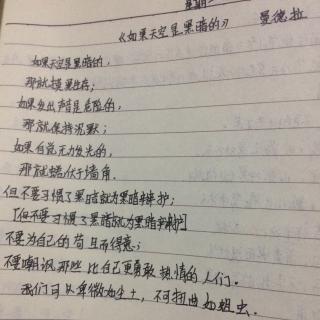 星期二
《如果天空是黑暗的》 曼德拉
如果天空是黑暗的，
那就摸黑生存；
如果发出声音是危险的，
那就保持沉默；
如果自觉无力发光的，
那就蜷伏于墙角．
但不要习惯了黑暗就为黑暗辩护；
[但不要习惯了黑暗就为黑暗辩护]
不要为自己的苟且而得意；
不要嘲讽那些比自己更勇敢热情的人们．
我们可以卑微如尘土，不可扭曲如蛆虫．